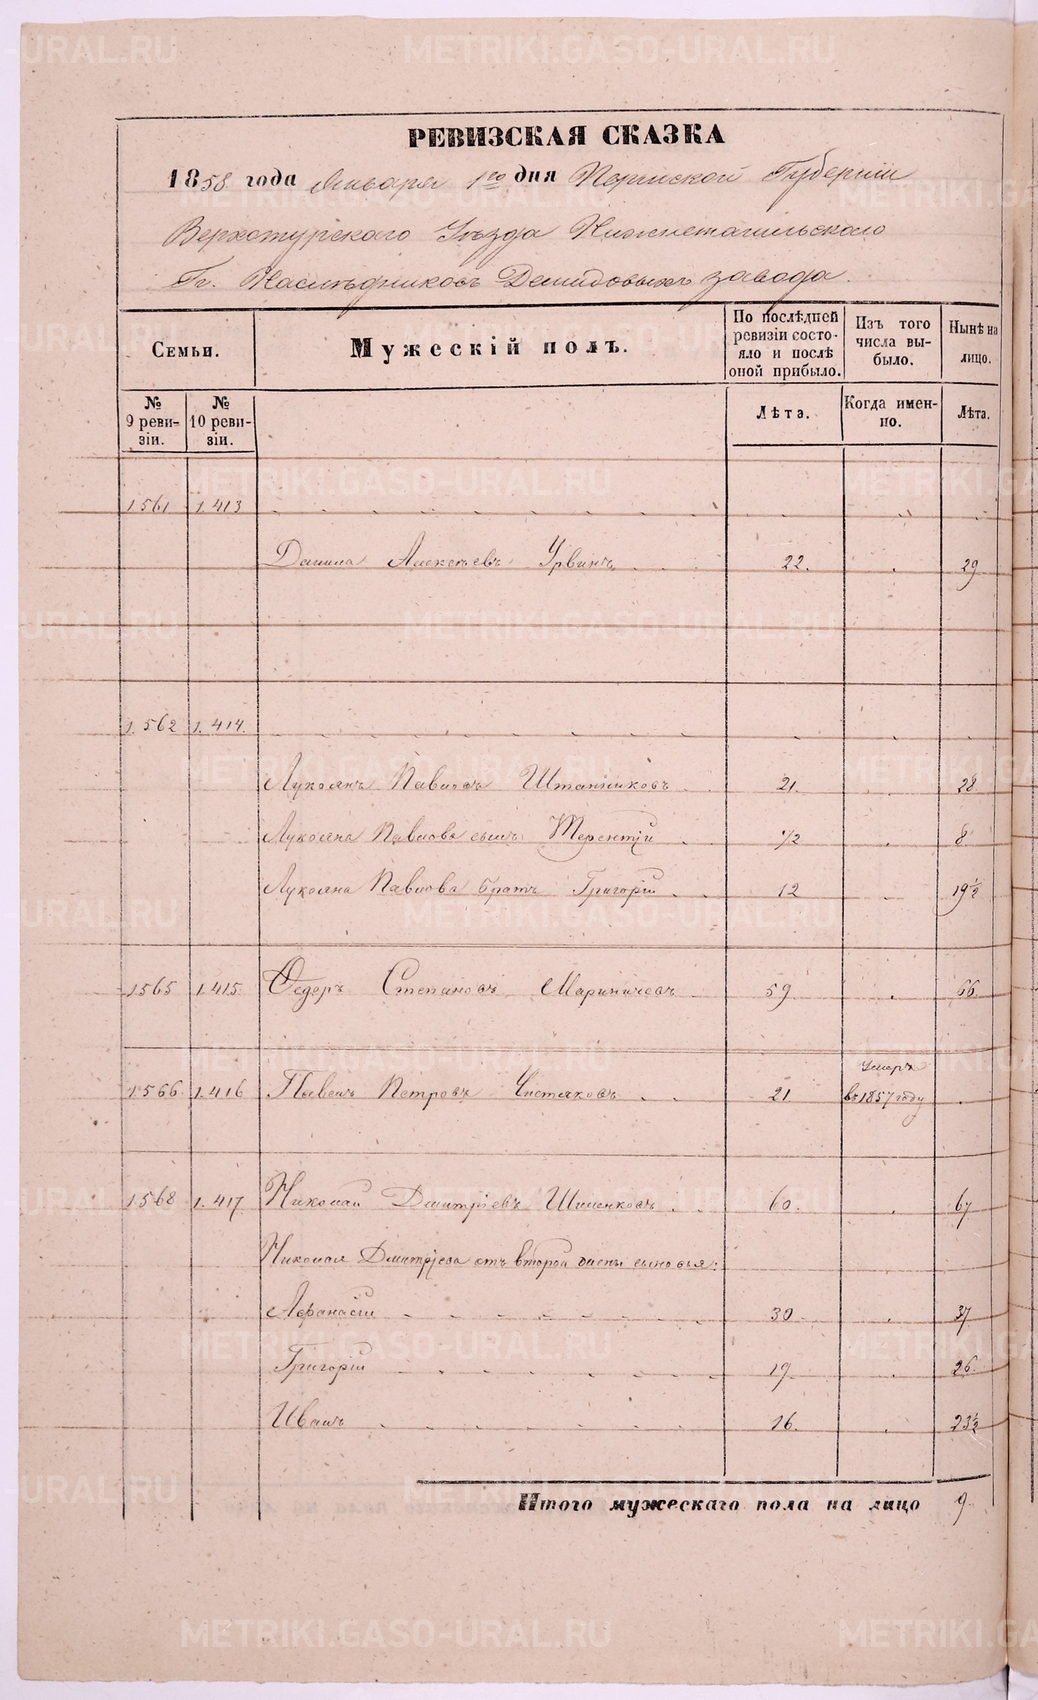 РЕВИЗСКАЯ СКАЗКА
1858 года Января 1го дня Пермской Губерніи
Верхотурскаго Уѣзда Нижнетагильскаго
Гг. Наслѣдниковъ Демидовыхъ завода.
Семьи. Мужескій полъ. По послѣдней ревизіи состояло и послѣ оной прибыло. Изъ того числа выбыло. Нынѣ на лицо.
№ 9 ревизіи. № 10 ревизіи. Лѣта. Когда именно. Лѣта.
1561 1.413
Данила Алексѣевъ Урвинъ 22. 29
1.562 1.414.
Лукоянъ Павловъ Штанниковъ 21. 28
Лукояна Павлова сынъ Терентій 1/2 8
Лукояна Павлова братъ Григорій 12 19 1/2
1565 1.415 Федеръ Степановъ Мариничевъ 59 66
1566 1.416 Павелъ Петровъ Чистяковъ 21 Умеръ въ 1857 году
1568 1.417 Николай Дмитріевъ Шиленковъ 60. 67
Николая Дмитріева отъ второй жены сыновья:
Афанасій 30 37
Григорій 19. 26
Иванъ 16. 23 1/2
Итого мужескаго пола на лицо 9.
METRIKI.GASO-URAL.RU